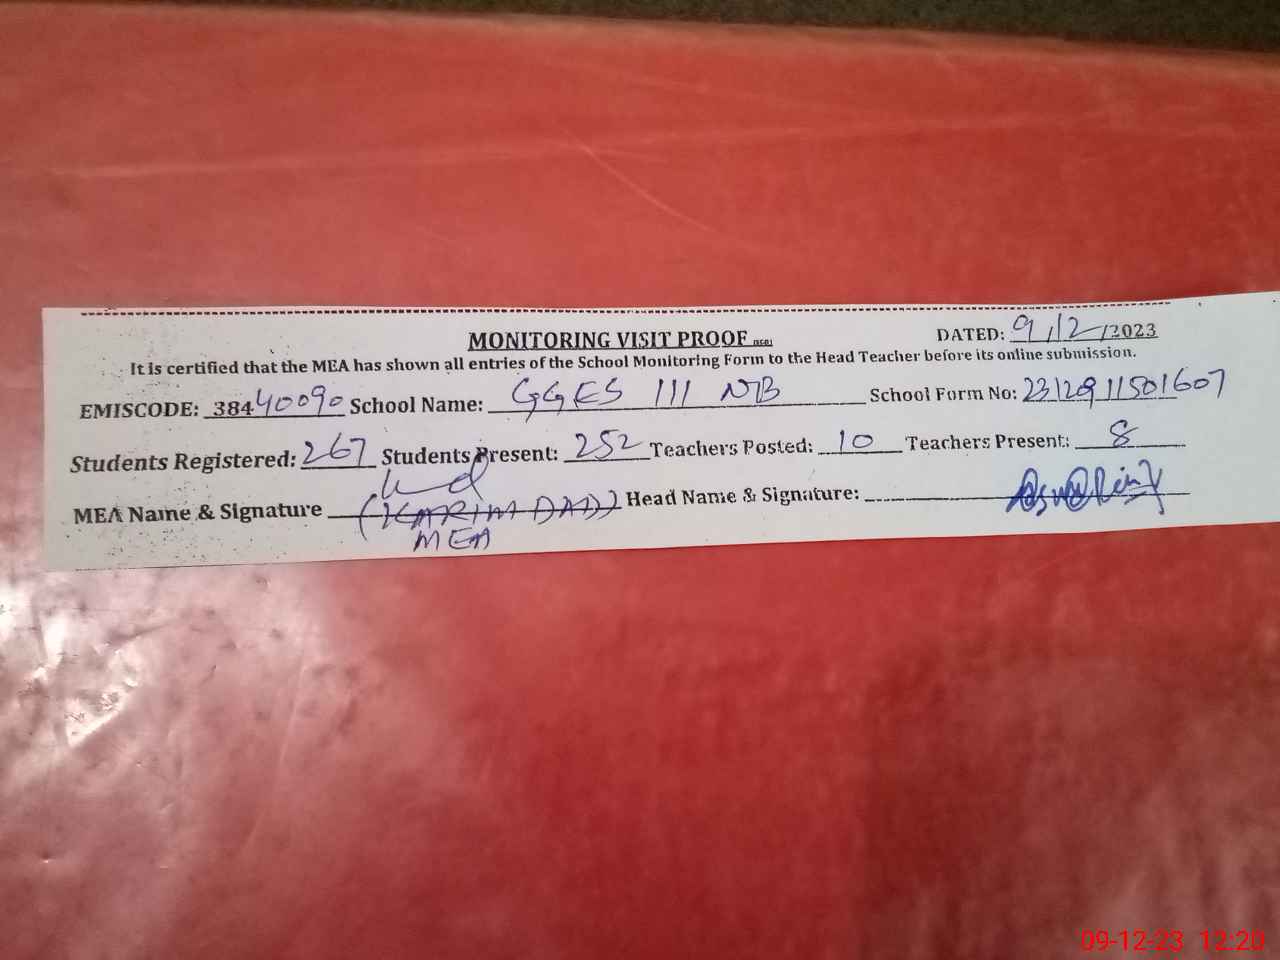 MONITORING VISIT PROOF
DATED: 9/12/2023
It is certified that the MEA has shown all entries of the School Monitoring Form to the Head Teacher before its online submission.
EMISCODE: 38440090 School Name: GGES III NTB School Form No: 23120911501607
Students Registered: 267 Students Present: 252 Teachers Posted: 10 Teachers Present: 8
MEA Name & Signature (KARIM DAD) Head Name & Signature:
MEA
09-12-23 12:20